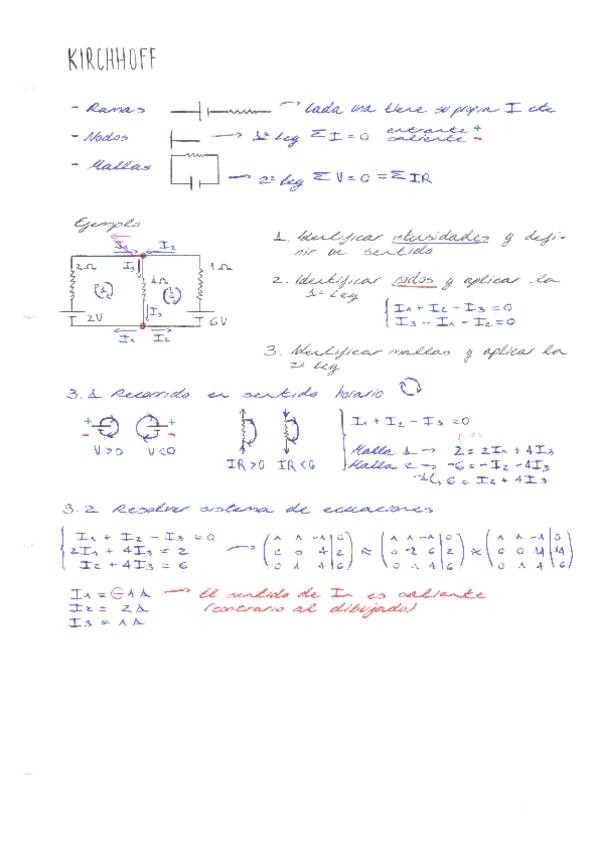 KIRCHHOFF
- Ramas → Cada una tiene su propia I etc
- Nodos → 1ª ley ΣI=0 entrante +
saliente -
- Mallas → 2ª ley ΣV=0=ΣIR
Ejemplo
I1 I2
2Ω I3 4Ω 1Ω
1 2
I3
2V 6V
I1 I2
1. Identificar intensidades y defi-
nir un sentido
2. Identificar nodos y aplicar la
1ª ley
I1 + I2 - I3 = 0
I3 - I1 - I2 = 0
3. Identificar mallas y aplicar la
2ª ley
3.1 Recorrido en sentido horario
+ - V>0
+ - V<0
IR>0 IR<0
I1 + I2 - I3 = 0
Malla 1 → 2 = 2I1 + 4I3
Malla 2 → -6 = -I2 - 4I3
6 = I2 + 4I3
3.2 Resolver sistema de ecuaciones
I1 + I2 - I3 = 0
2I1 + 4I3 = 2
I2 + 4I3 = 6
→ (1 1 -1 | 0
2 0 4 | 2
0 1 4 | 6) ≈ (1 1 -1 | 0
0 -2 6 | 2
0 1 4 | 6) ≈ (1 1 -1 | 0
0 0 14 | 14
0 1 4 | 6)
I1 = -1A → El sentido de I1 es saliente
I2 = 2A (contrario al dibujado)
I3 = 1A